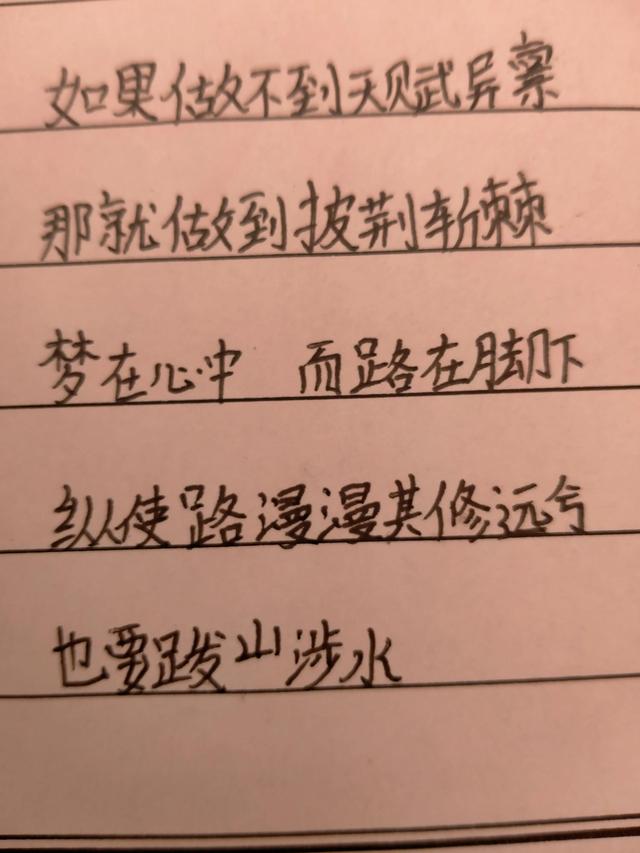 如果做不到天赋异禀
那就做到披荆斩棘
梦在心中 而路在脚下
纵使路漫漫其修远兮
也要跋山涉水